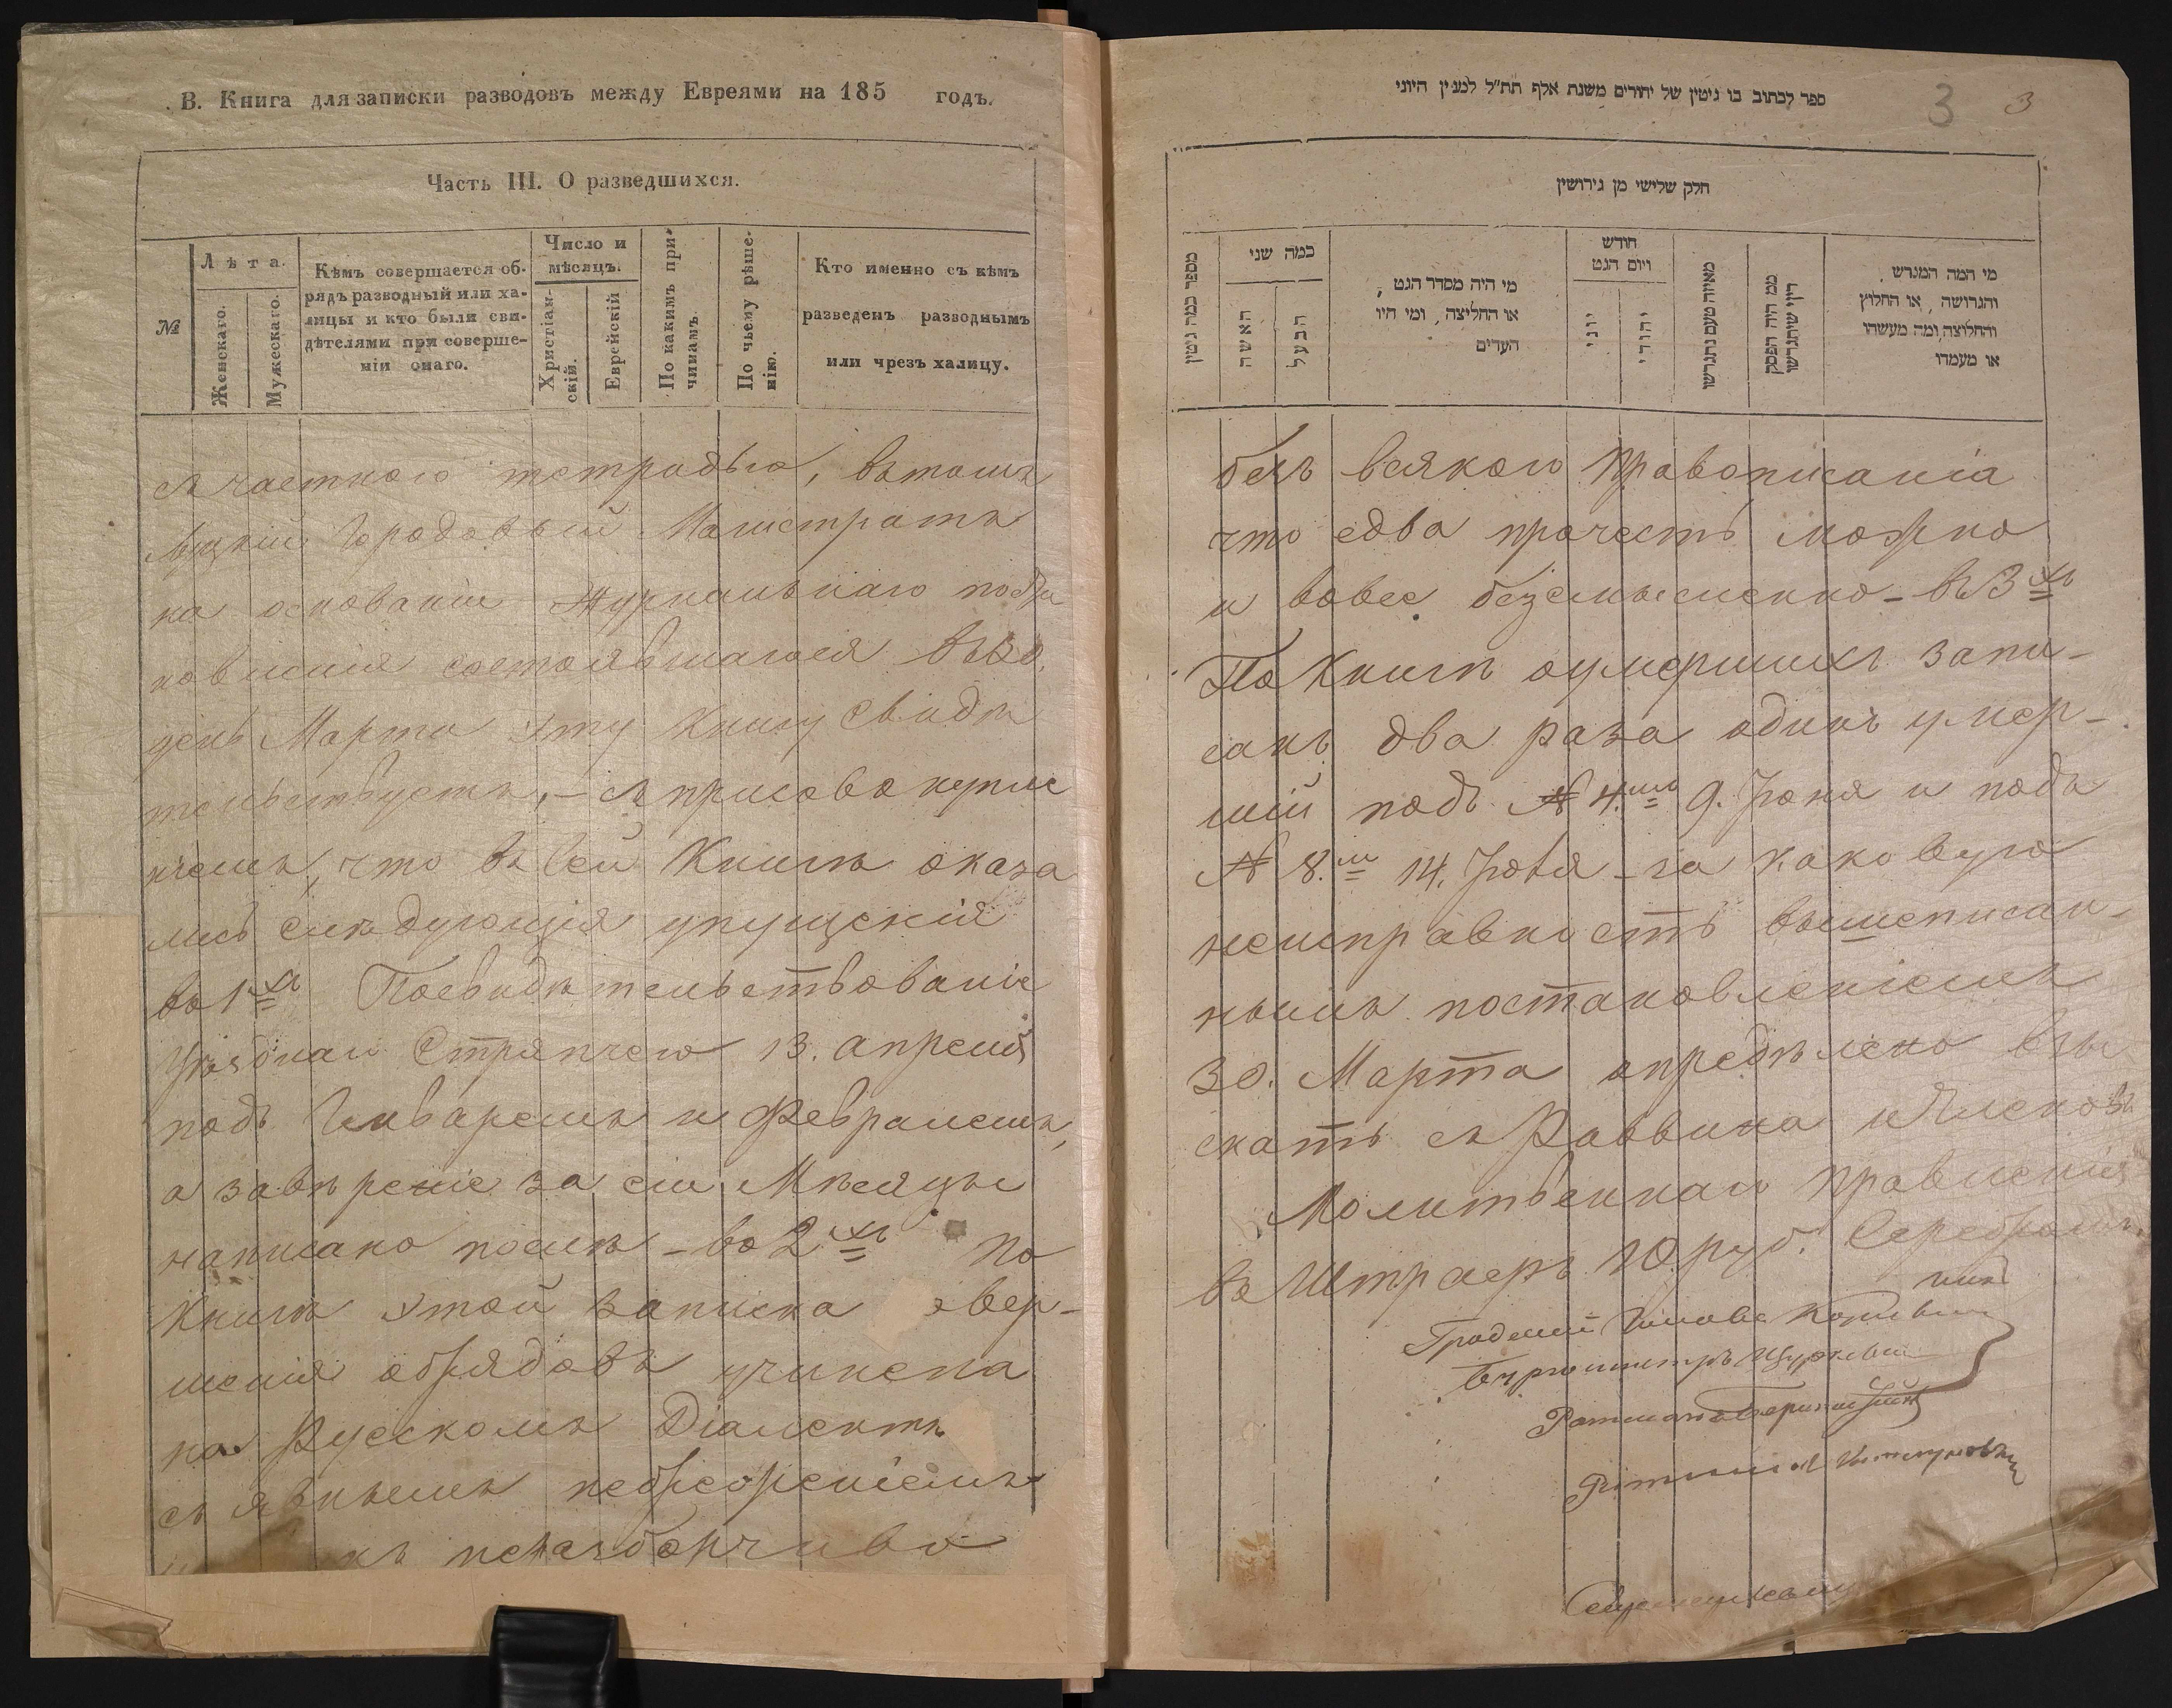 В. Книга для записки разводовъ между Евреями на 185 годъ.
Часть III. О разведшихся.
№
Лѣта.
Женскаго.
Мужескаго.
Кѣмъ совершается об-
рядъ разводный или ха-
лицы и кто были сви-
дѣтелями при соверше-
ніи онаго.
Число и
мѣсяцъ.
Христіан-
скій.
Еврейскій
По какимъ при-
чинамъ.
По чьему рѣше-
нію.
Кто именно съ кѣмъ
разведенъ разводнымъ
или чрезъ халицу.
тетрадью, въ томъ
Луцкій Городовый Магистратъ
на основаніи Журнальнаго поста
новленія состоявшагося въ 30.
день Марта эту Книгу Свидѣ
тельствуетъ, – съ присовокупле
ніемъ, что въ сей Книгѣ оказа
лись слѣдующія упущенія
во 1хъ Посвидѣтельствованіе
Уѣзднаго Стряпчего 13. апреля
подъ Генваремъ и Февралемъ,
а завѣреніе за сіи Мѣсяцы
написано послѣ – во 2хъ По
Книгѣ этой записка
шенія обрядовъ учинена
на Русскомъ Діалектѣ
съ явнымъ небреженіемъ
неразборчиво
ספר לכתוב בו גיטין של יהודים משנת אלף תת"ל למנין היוני
3 3
חלק שלישי מן גירושין
מספר כמה גיטין
כמה שני
האשה
הבעל
מי היה מסדר הגט
או החליצה, ומי היו
העדים
חודש
ויום הגט
יוני
יהודי
מאיזה טעם נתגרשו
ממי היה הפסק
דין שיתגרשו
מי המה המגרש
והגרושה, או החלוץ
והחלוצה, ומה מעשהו
או מעמדו
безъ всякого Правописанія
что едва прочесть можно
и вовсе безсмысленно – въ 3хъ
По Книгѣ оумершихъ запи-
санъ два раза одинъ умер-
шій подъ № 4.мъ 9. Іюня и подъ
№ 8.мъ 14. Іюня – за каковую
неисправность вышеписан-
нымъ постановленіемъ
30. Марта опредѣлено взы
скать съ Раввина и Членовъ
Молитвеннаго Правленія
въ Штрафъ 10 руб. Серебромъ
Бургомистръ
Ратманъ